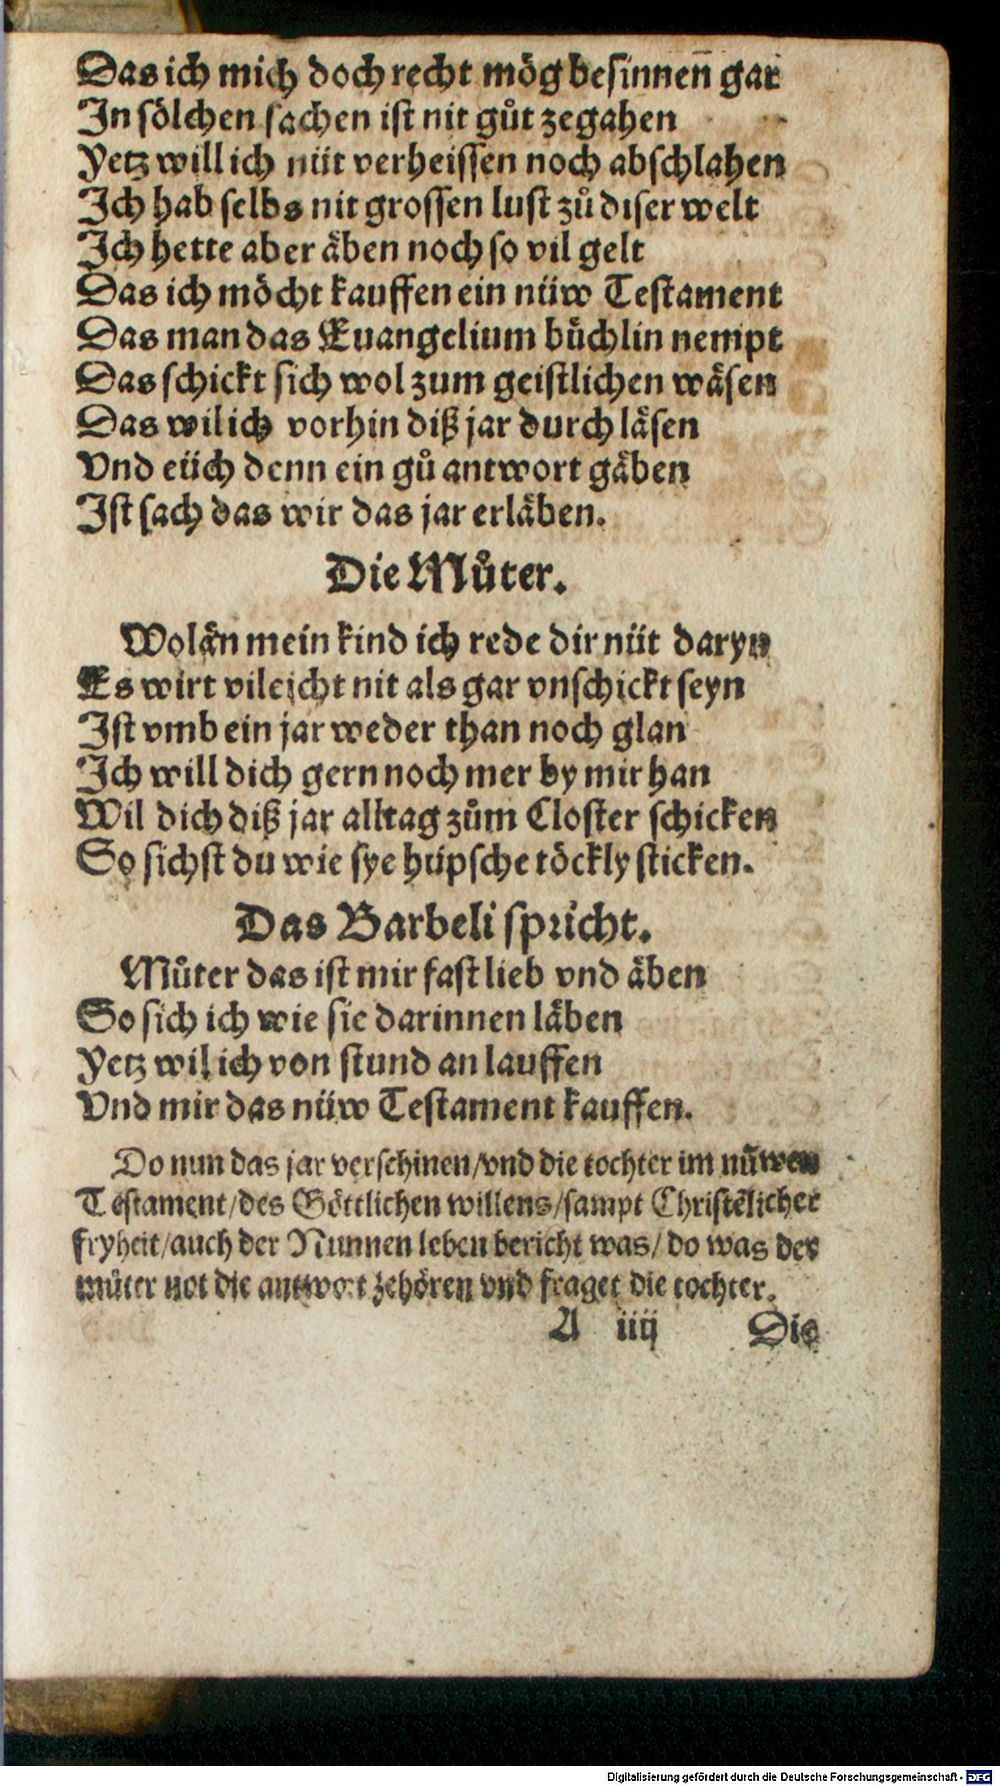 Das ich mich doch recht mög besinnen̄ gar
In sölchen sachen ist nit gůt zegahen
Yetz will ich nüt verheissen noch abschlahen
Ich hab selbs nit grossen lust zů diser welt
Ich hette aber äben noch so vil gelt
Das ich möcht kauffen ein nüw Testament
Das man das Euangelium büchlin nempt
Das schickt sich wol zum geistlichen wäsen
Das wil ich vorhin diß jar durch läsen
Vnd eüch denn ein gů antwort gäben
Ist sach das wir das jar erläben.
Die Můter.
Wolän mein kind ich rede dir nüt daryn
Es wirt vileicht nit als gar vnschickt seyn
Ist vmb ein jar weder than noch glan
Ich will dich gern noch mer by mir han
Wil dich diß jar alltag zům Closter schicken
So sichst du wie sye hüpsche töckly sticken.
Das Barbeli spricht.
Můter das ist mir fast lieb vnd äben
So sich ich wie sie darinnen läben
Yetz wil ich von stund an lauffen
Vnd mir das nüw Testament kauffen.
Do nun das jar verschinen/vnd die tochter im nüwen
Testament/des Göttlichen willens/sampt Christēlicher
fryheit/auch der Nunnen leben bericht was/do was der
můter not die antwort zehören vnd fraget die tochter.
A iiij Die
Digitalisierung gefördert durch die Deutsche Forschungsgemeinschaft - DFG